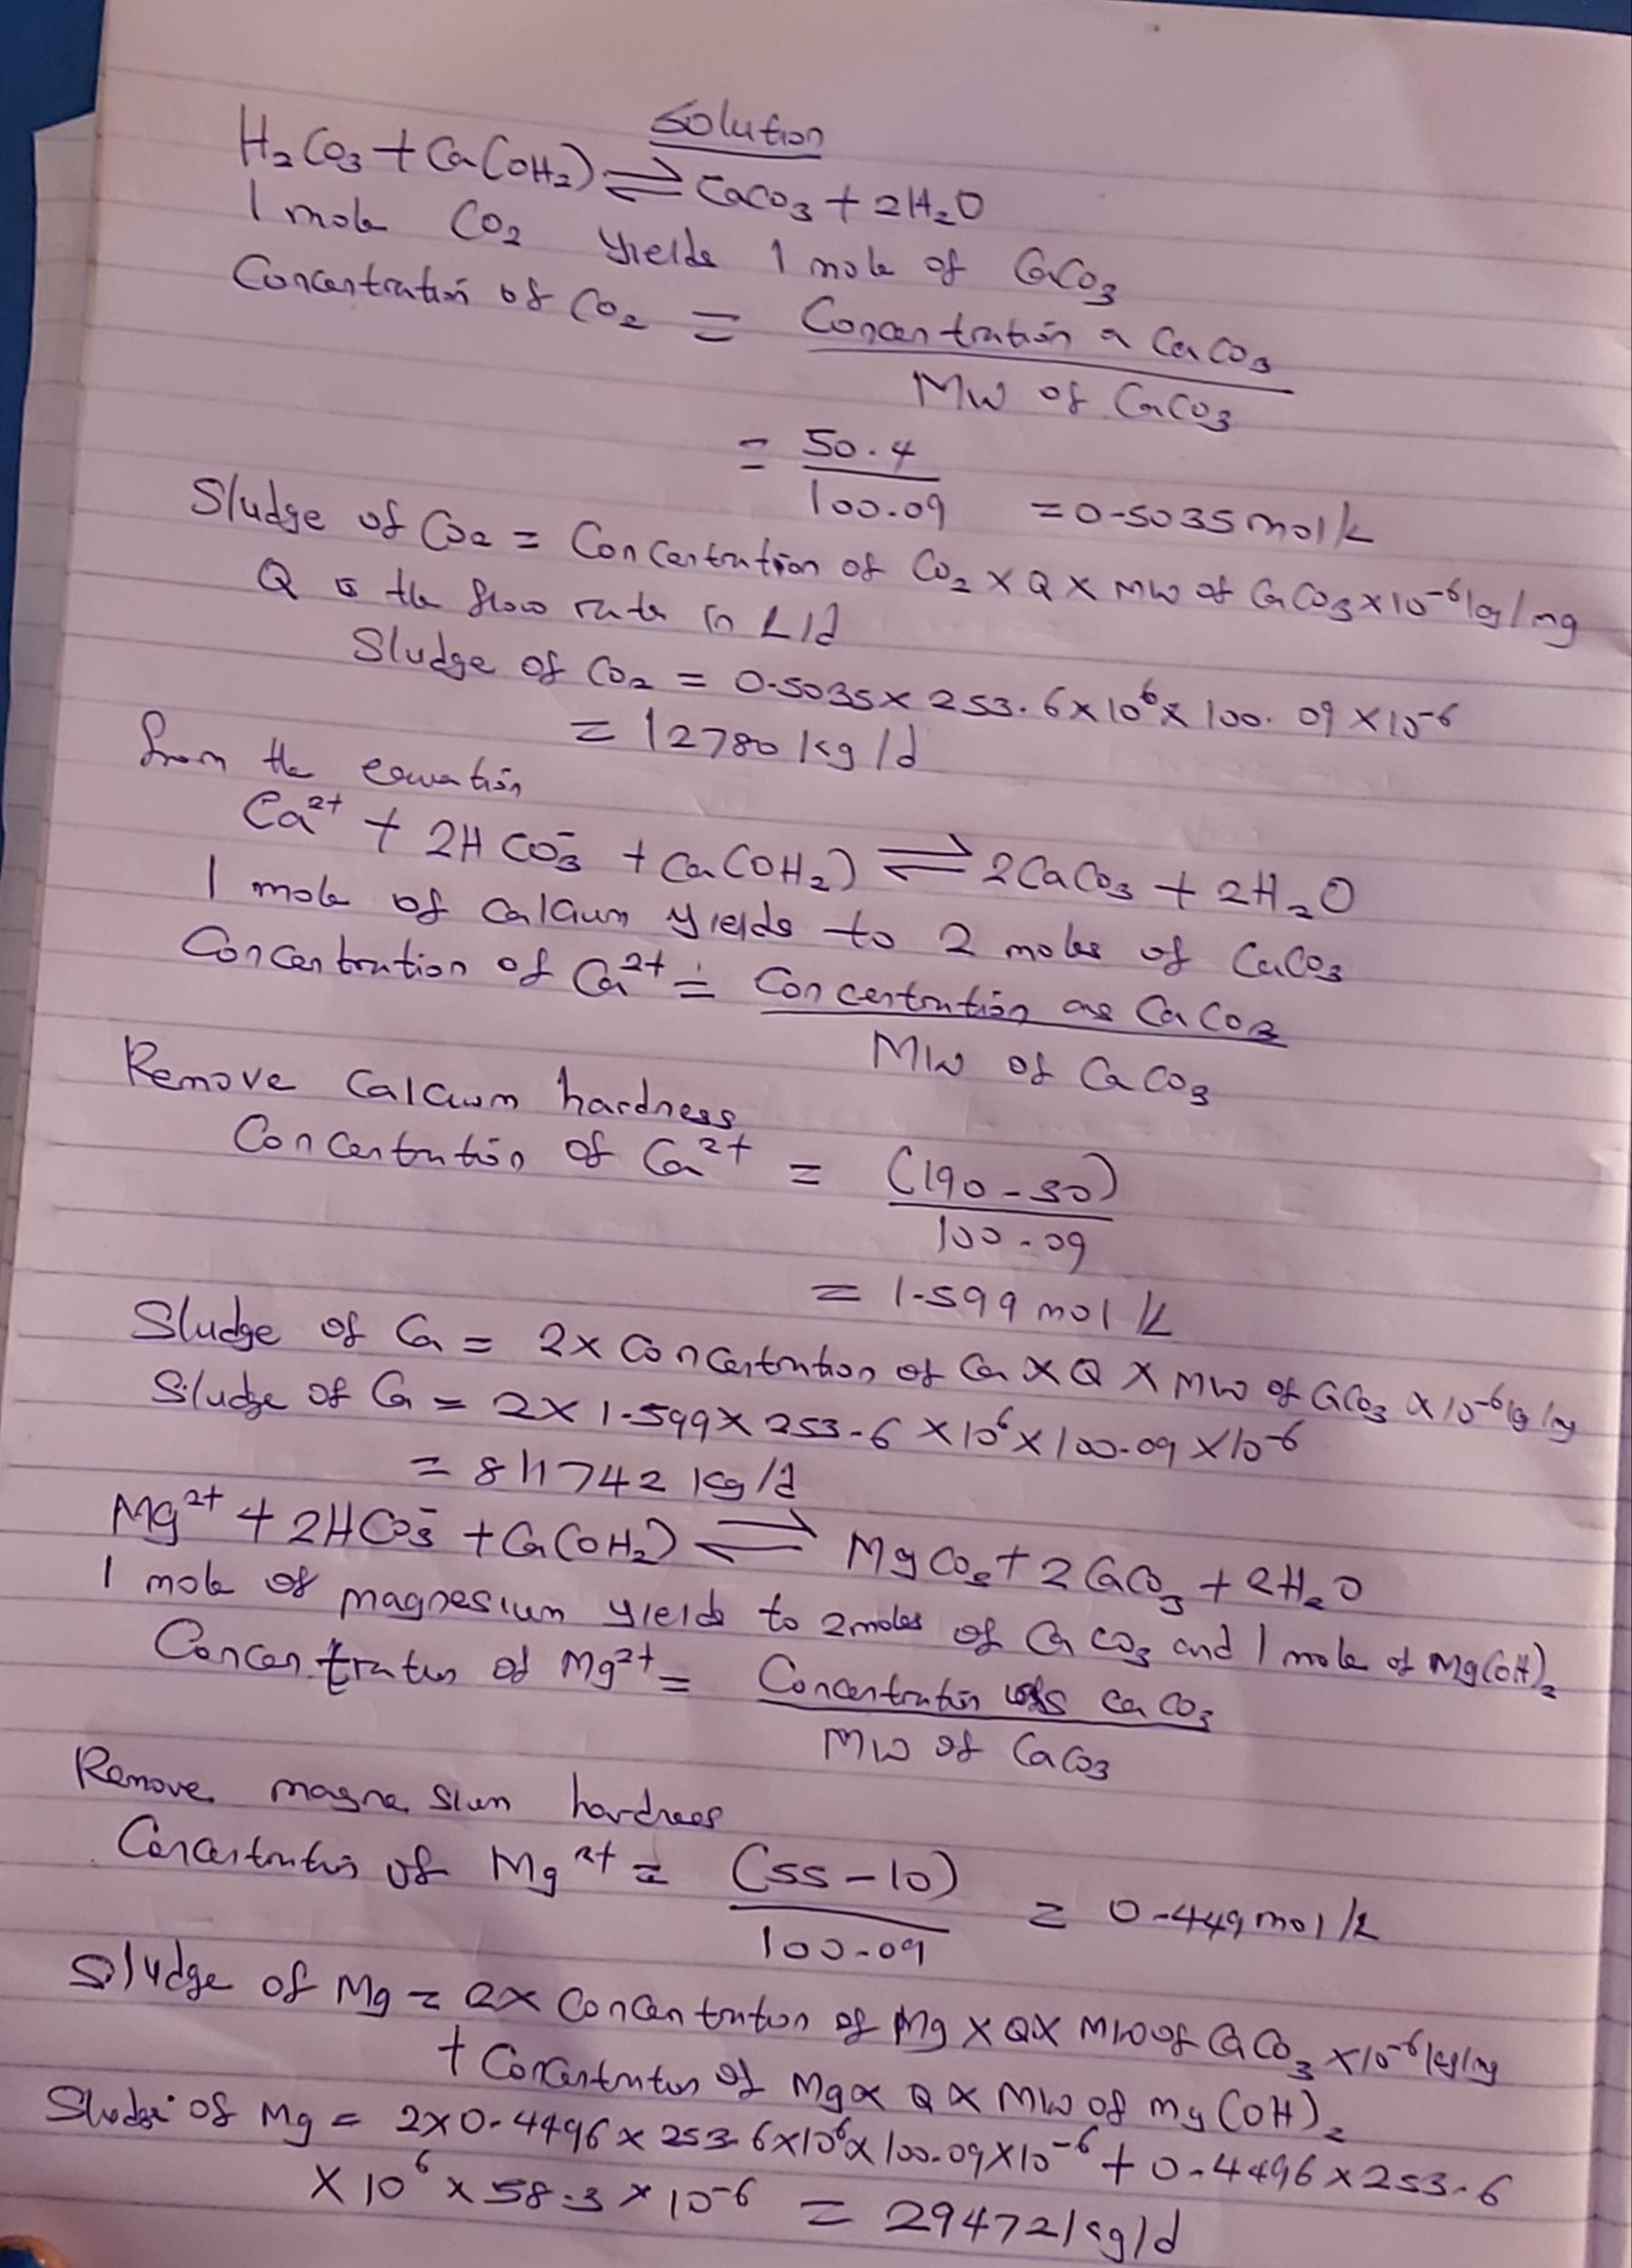 Solution
H₂CO₃ + Ca(OH₂) ⇌ CaCO₃ + 2H₂O
1 mole CO₂ yields 1 mole of CaCO₃
Concentration of CO₂ = Concentration a CaCO₃
MW of CaCO₃
= 50.4
100.09 = 0.5035 mol/L
Sludge of CO₂ = Concentration of CO₂ × Q × MW of CaCO₃ × 10⁻⁶ kg/mg
Q is the flow rate in L/d
Sludge of CO₂ = 0.5035 × 253.6 × 10⁶ × 100.09 × 10⁻⁶
= 12780 kg/d
from the equation
Ca²⁺ + 2HCO₃⁻ + Ca(OH₂) ⇌ 2CaCO₃ + 2H₂O
1 mole of calcium yields to 2 moles of CaCO₃
Concentration of Ca²⁺ = Concentration as CaCO₃
MW of CaCO₃
Remove Calcium hardness
Concentration of Ca²⁺ = (190 - 30)
100.09
= 1.599 mol/L
Sludge of Ca = 2× Concentration of Ca × Q × MW of CaCO₃ × 10⁻⁶ kg/mg
Sludge of Ca = 2 × 1.599 × 253.6 × 10⁶ × 100.09 × 10⁻⁶
= 811742 kg/d
Mg²⁺ + 2HCO₃⁻ + Ca(OH₂) ⇌ MgCO₃ + 2CaCO₃ + 2H₂O
1 mole of magnesium yields to 2moles of CaCO₃ and 1 mole of Mg(OH)₂
Concentration of Mg²⁺ = Concentration as CaCO₃
MW of CaCO₃
Remove magnesium hardness
Concentration of Mg²⁺ = (55 - 10)
100.09 = 0.449 mol/L
Sludge of Mg = 2× Concentration of Mg × Q × MW of CaCO₃ × 10⁻⁶ kg/mg
+ Concentration of Mg × Q × MW of Mg(OH)₂
Sludge of Mg = 2 × 0.4496 × 253.6 × 10⁶ × 100.09 × 10⁻⁶ + 0.4496 × 253.6
× 10⁶ × 58.3 × 10⁻⁶ = 29472 kg/d